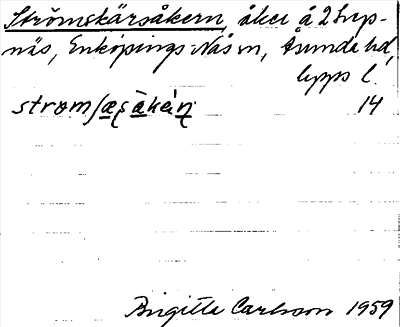 Strömskärsåkern, åker å 2 Lyp-
näs, Enköpings Näs sn, Åsunda hd,
Upps l.
14
Birgitta Carlsson 1959